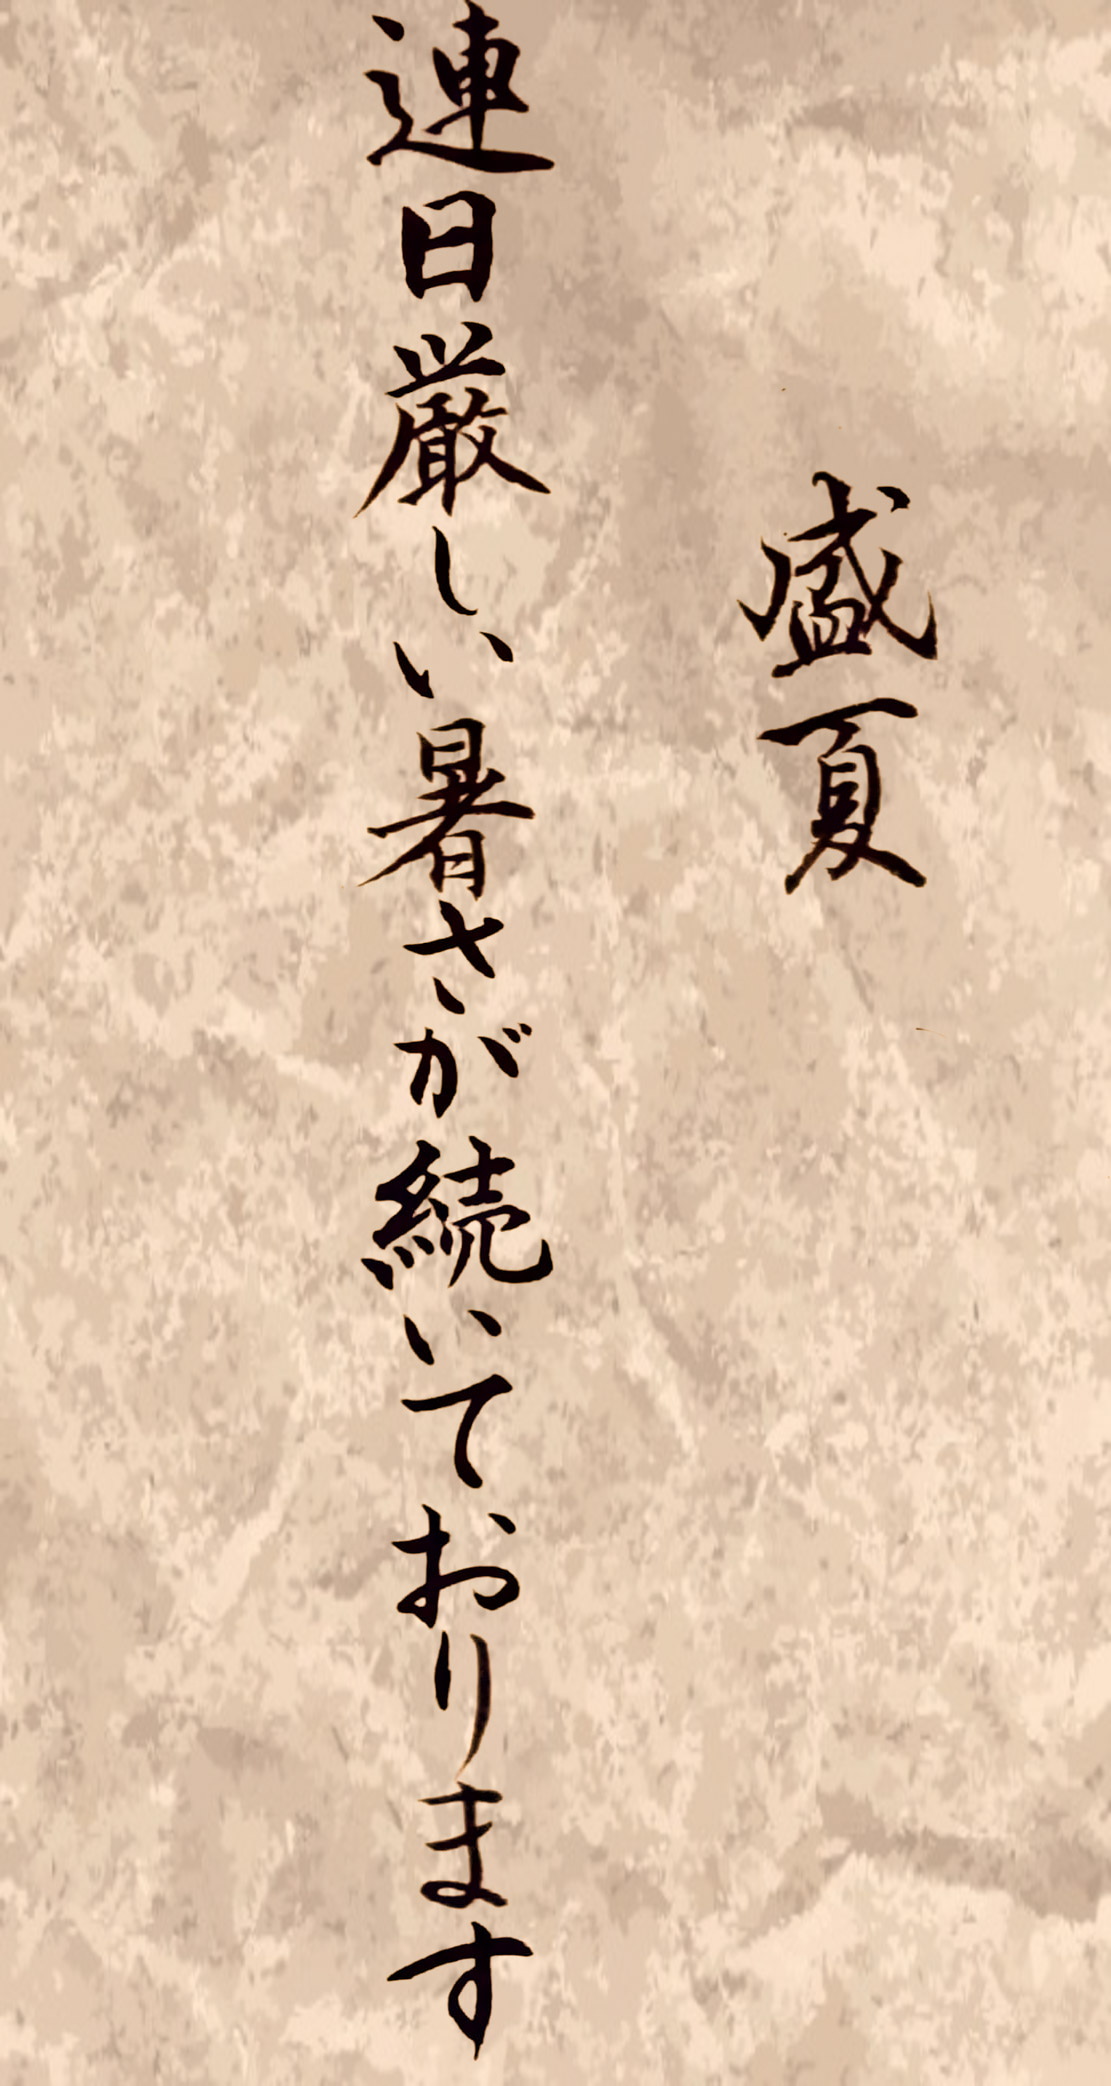 盛夏
連日厳しい暑さが続いております